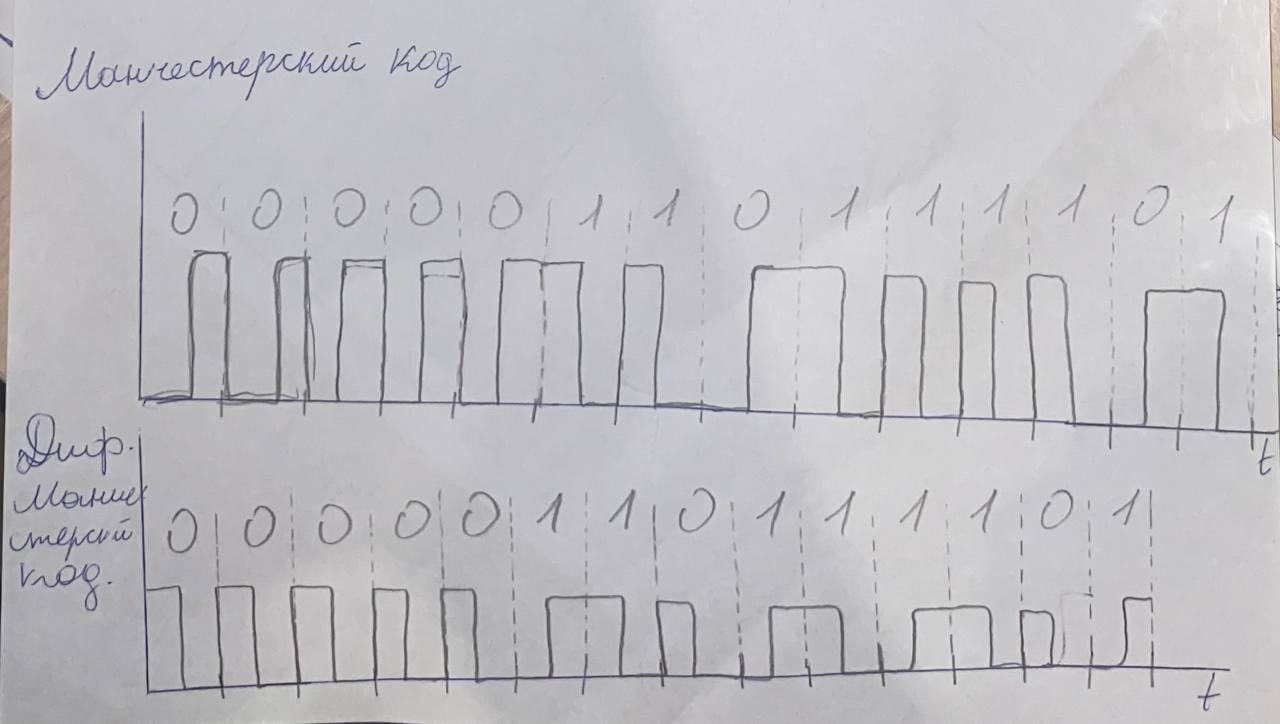 Манчестерский код
0 0 0 0 0 1 1 0 1 1 1 1 0 1
t
Диф.
Манче
стерский
код.
0 0 0 0 0 1 1 0 1 1 1 1 0 1
t